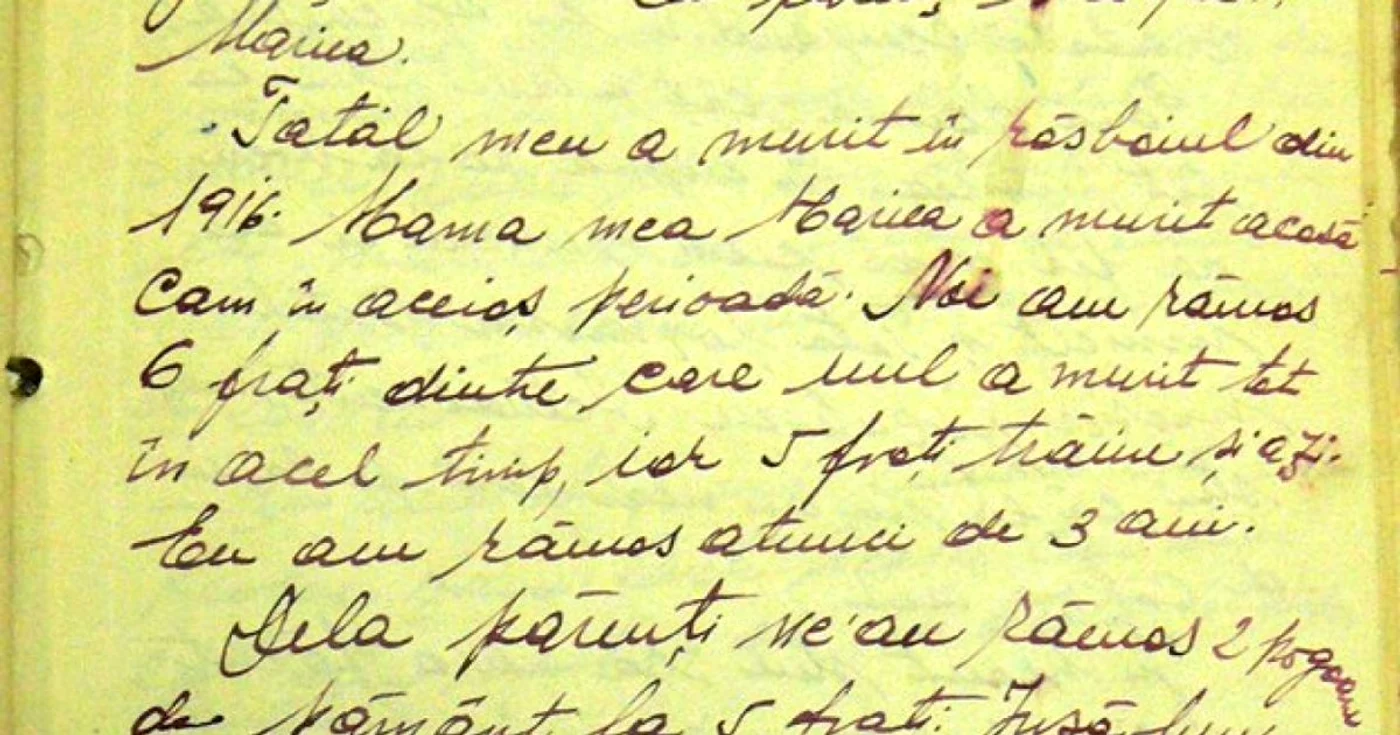 Marica.
Tatăl meu a murit în răsboiul din
1916. Mama mea Marica a murit acasă
cam în aceiaș perioadă. Noi am rămas
6 frați dintre care unul a murit tot
în acel timp, iar 5 frați trăim și azi.
Eu am rămas atunci de 3 ani.
Dela părinți ne'au rămas 2 pogoane
de pământ la 5 frați. Însă